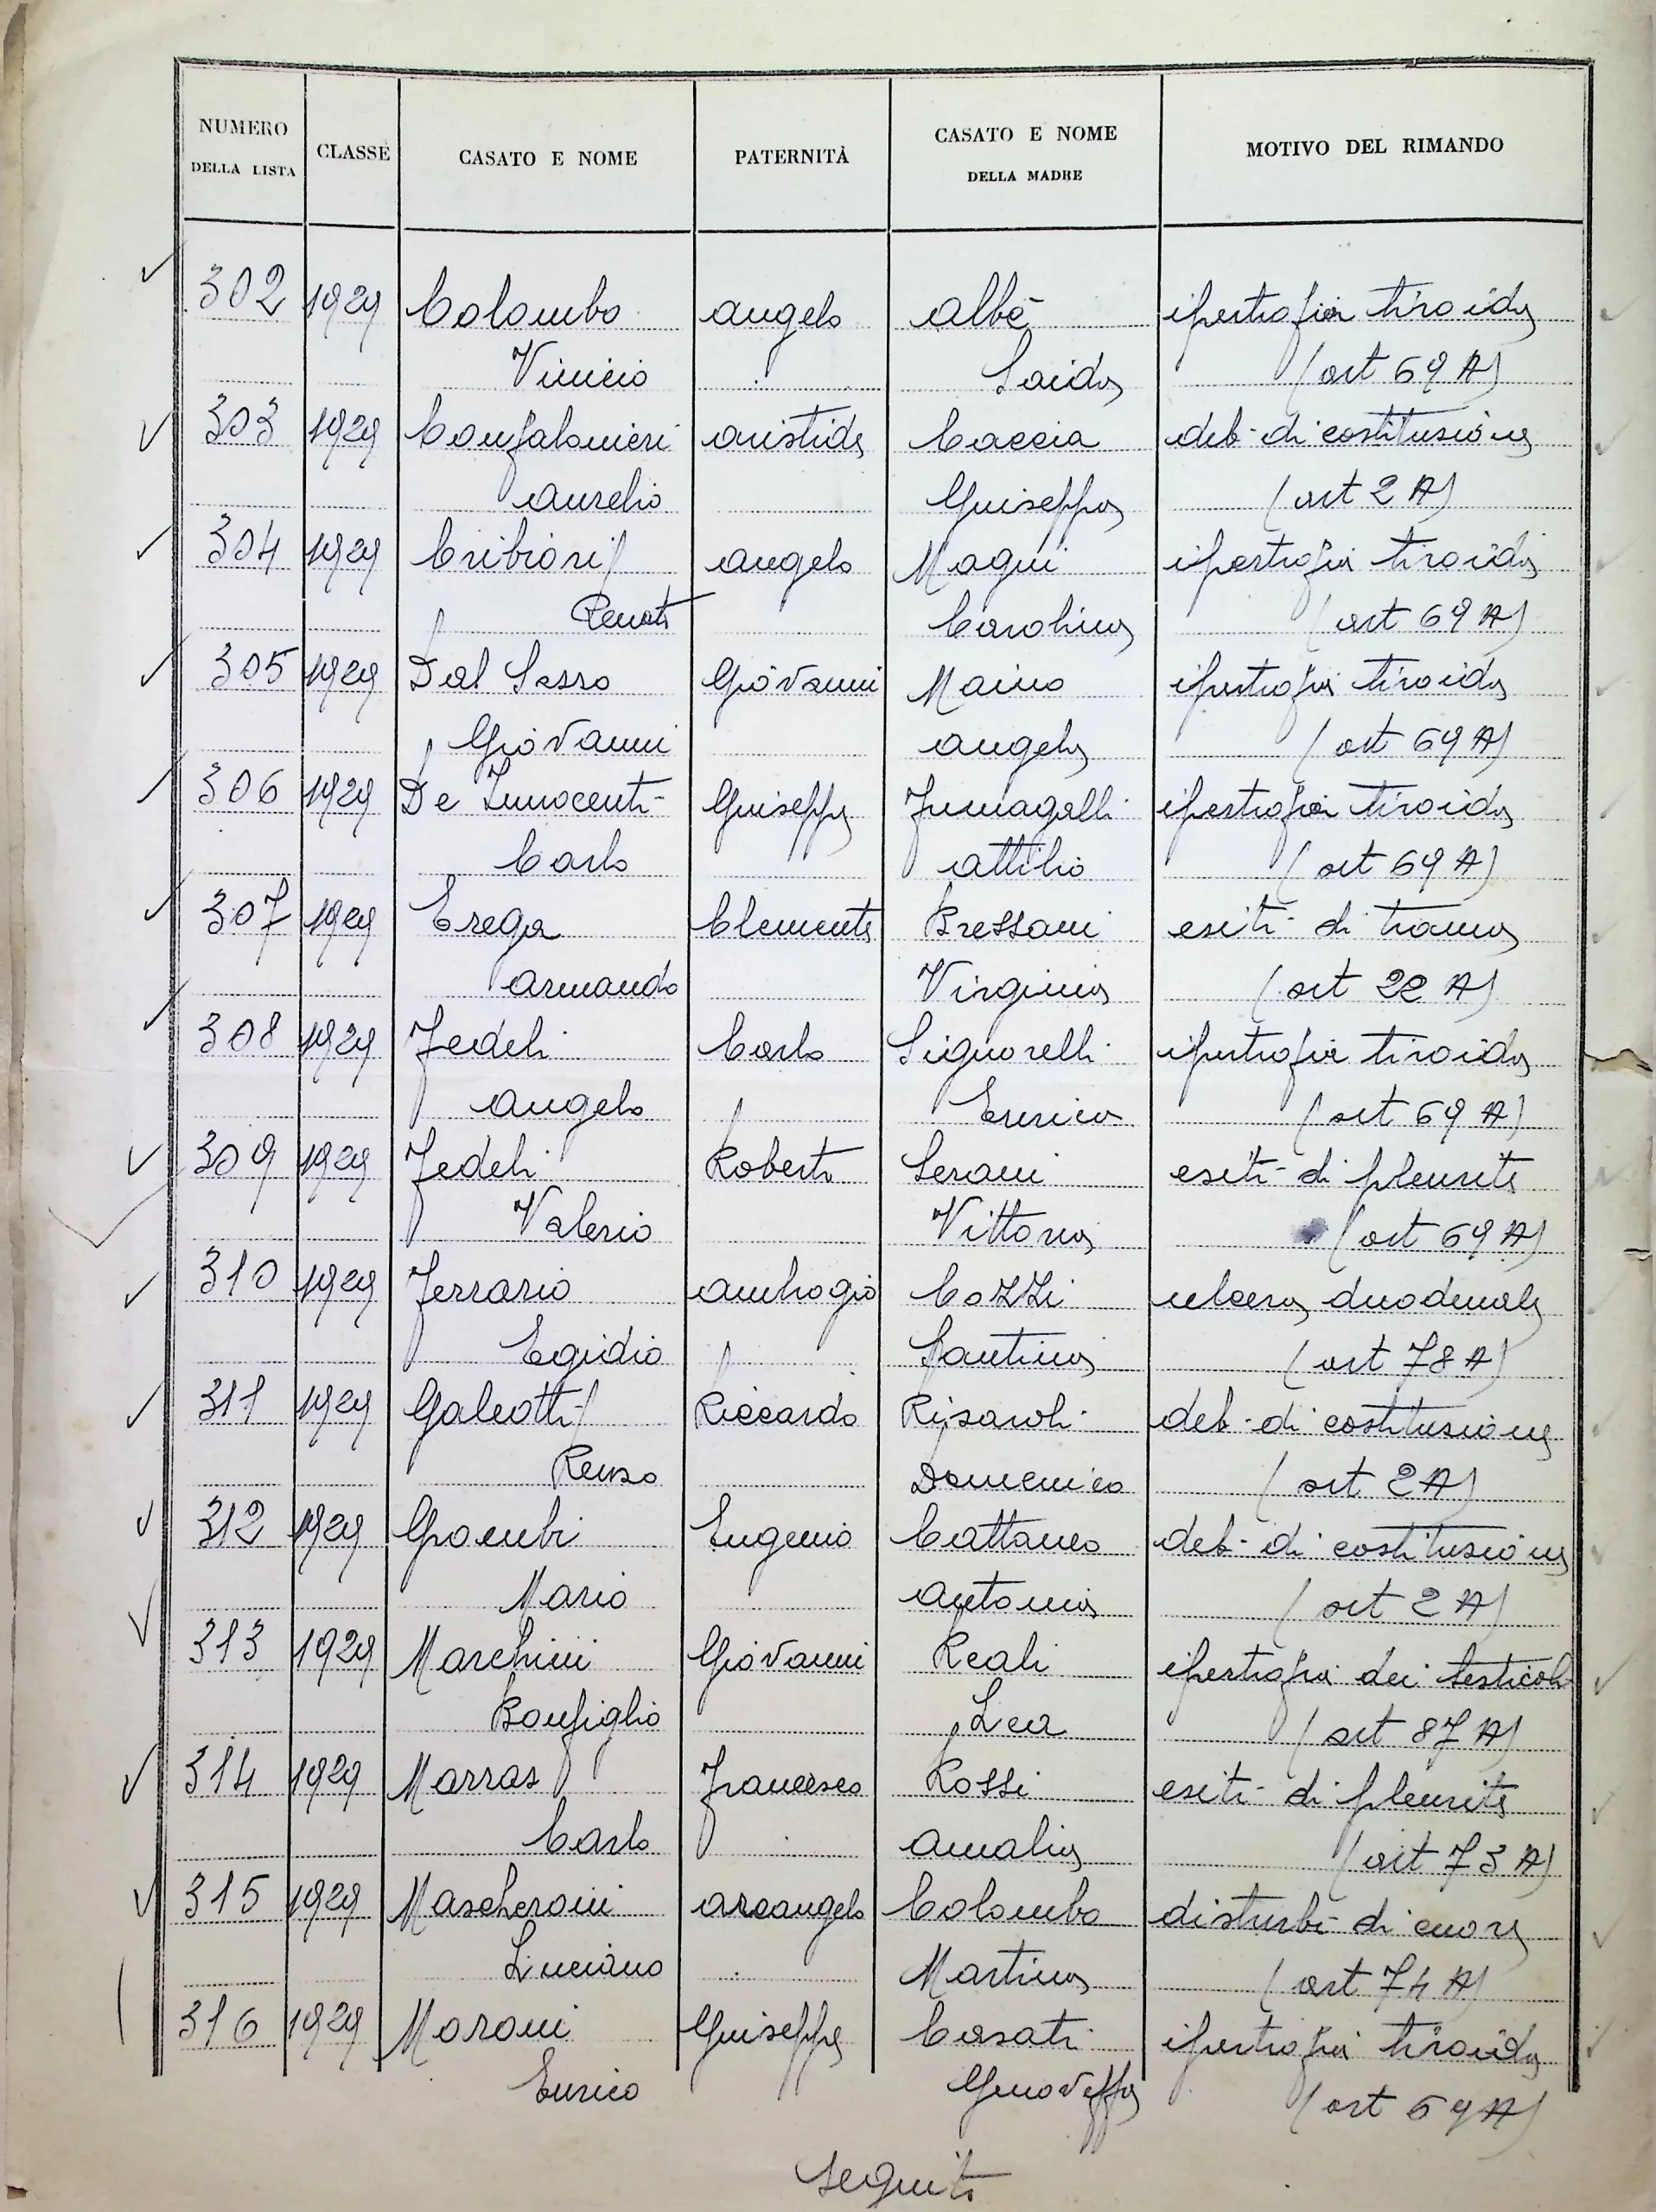 NUMERO DELLA LISTA CLASSE CASATO E NOME PATERNITÀ CASATO E NOME DELLA MADRE MOTIVO DEL RIMANDO
302 1929 Colombo angelo albè ipertrofia tiroide
Vinicio Saida (art 69 A)
303 1929 Confalonieri aristide Caccia deb. di costituzione
aurelio Giuseppa (art 2 A)
304 1929 Cribiori angelo Magni ipertrofia tiroide
Renato Carolina (art 69 A)
305 1929 Dal Sasso Giovanni Maino ipertrofia tiroide
Giovanni angela (art 69 A)
306 1929 De Innocenti Giuseppe Fumagalli ipertrofia tiroide
Carlo attilio (art 69 A)
307 1929 Erega Clemente Bressani esiti di trauma
armando Virginia (art 22 A)
308 1929 Fedeli Carlo Signorelli ipertrofia tiroide
angelo Enrica (art 69 A)
309 1929 Fedeli Roberto Serani esiti di pleurite
Valerio Vittoria (art 69 A)
310 1929 Ferrario ambrogio Cozzi ulcera duodenale
Egidio Santina (art 78 A)
311 1929 Galeotti Riccardo Risaroli deb. di costituzione
Renzo Domenica (art 2 A)
312 1929 Giambi Eugenio Cattaneo deb. di costituzione
Mario antonia (art 2 A)
313 1929 Marchini Giovanni Reali ipertrofia dei testicoli
Bonfiglio Lea (art 87 A)
314 1929 Marras Francesco Rossi esiti di pleurite
Carlo amalia (art 73 A)
315 1929 Mascheroni arcangelo Colombo disturbi di cuore
Luciano Martina (art 74 A)
316 1929 Moroni Giuseppe Casati ipertrofia tiroide
Enrico Genoveffa (art 69 A)
seguito